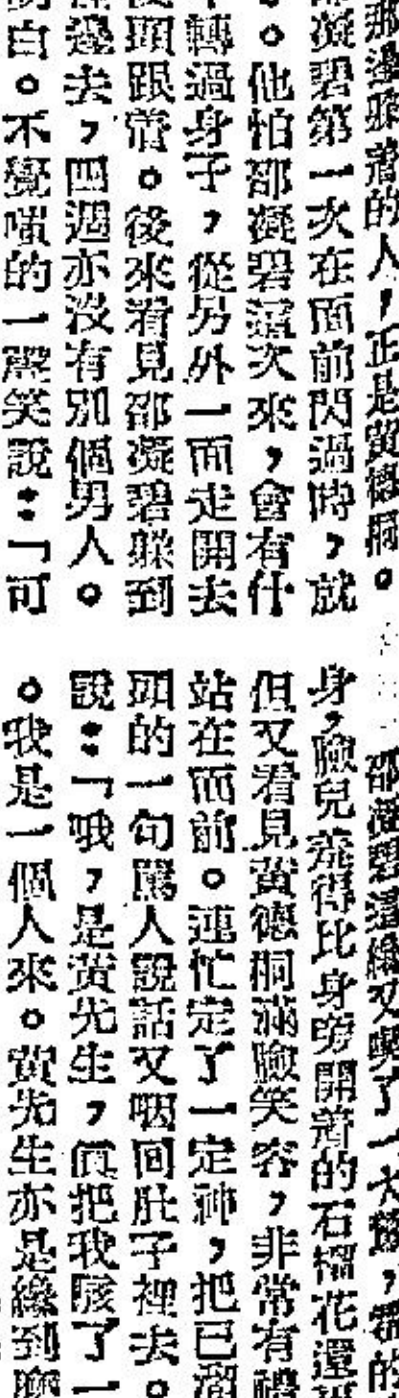 那邊躲着的人，正是黃德桐。
邵凝碧第一次在面前閃過時，就
。他怕邵凝碧這次來，會有什
轉過身子，從另外一面走開去
頭跟着。後來看見邵凝碧躲到
邊去，四週亦沒有別個男人。
白。不覺嗤的一聲笑說：「可
邵凝碧這纔又喫了一大驚，霍的
身，臉兒羞得比身旁開着的石榴花還
但又看見黃德桐滿臉笑容，非常有禮
站在面前。連忙定了一定神，把已溜
頭的一句罵人說話又咽回肚子裡去。
說：「哦，是黃先生，真把我駭了一
。我是一個人來。黃先生亦是纔到